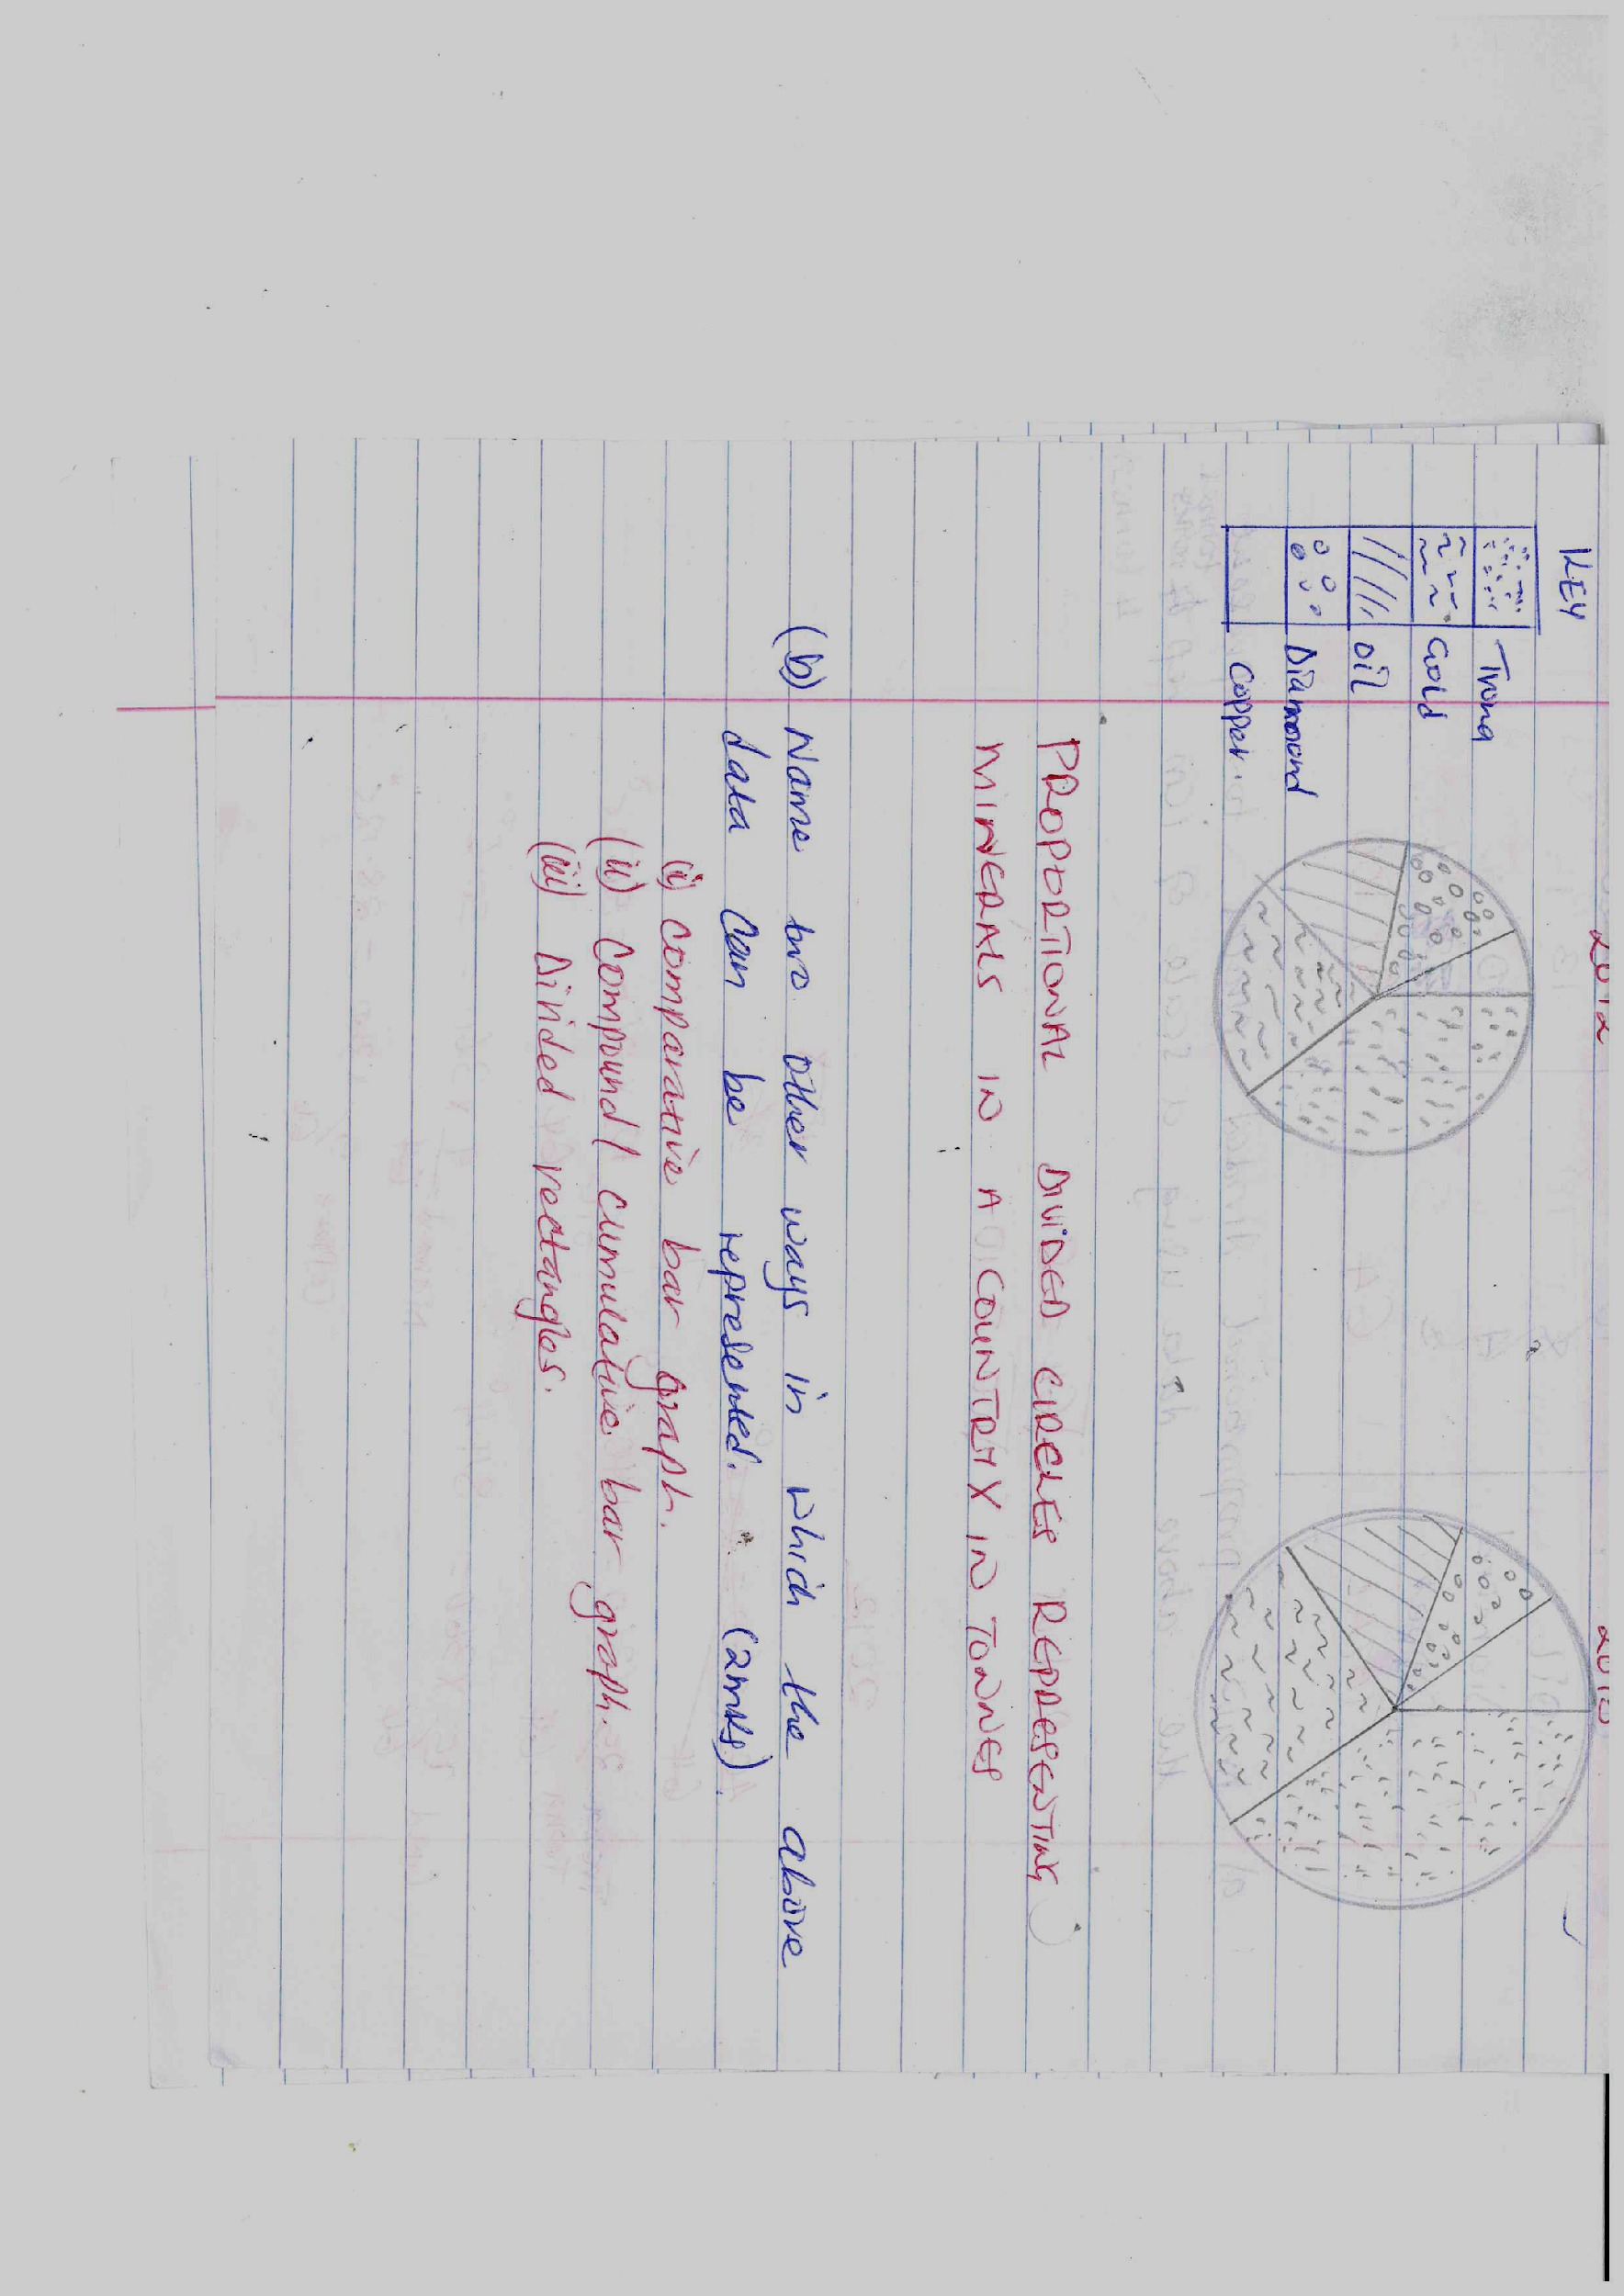 2012
KEY
Trona
Gold
oil
Diamond
Copper.
PROPORTIONAL DIVIDED CIRCLES REPRESENTING
MINERALS IN A COUNTRY X IN TONNES
(b) Name two other ways in which the above
data can be represented. (2mks).
(i) comparative bar graph.
(ii) Compound / cumulative bar graph.
(iii) Divided rectangles.